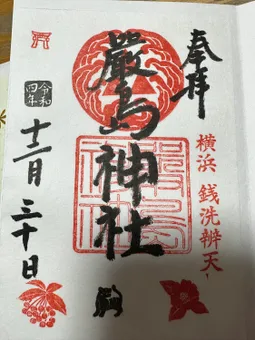 奉拝
横浜 銭洗辨天
嚴島神社
令和
四年
十二月 三十日